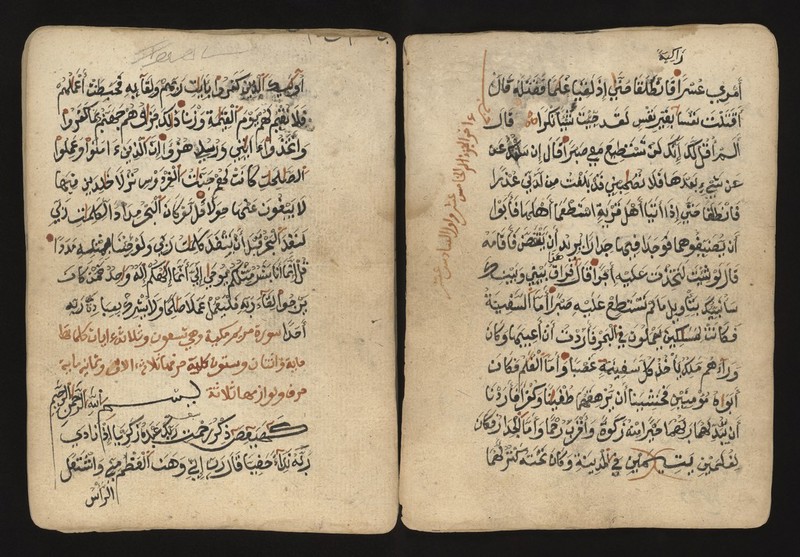 زاكية
أمري عسرا فانطلقا حتى إذا لقيا غلما فقتله قال
أقتلت نفسا بغير نفس لقد جئت شيئا نكرا قال
ألم أقل لك إنك لن تستطيع معي صبرا قال إن سألتك عن
عن شيء بعدها فلا تصحبني قد بلغت من لدني عذرا
فانطلقا حتى إذا أتيا أهل قرية استطعما أهلها فأبوا
أن يضيفوهما فوجدا فيها جدارا يريد أن ينقض فأقامه
قال لو شئت لتخذت عليه أجرا قال هذا فراق بيني وبينك
سأنبئك بتأويل ما لم تستطع عليه صبرا أما السفينة
فكانت لمسكين يعملون في البحر فأردت أن أعيبها وكان
وراءهم ملك يأخذ كل سفينة غصبا وأما الغلم فكان
أبواه مؤمنين فخشينا أن يرهقهما طغينا وكفرا فأردنا
أن يبدلهما ربهما خيرا منه زكوة وأقرب رحما وأما الجدار فكان
لغلمين يتيمين في المدينة وكان تحته كنز لهما
آخر الجزء الخامس عشر وأول السادس عشر
أولئك الذين كفروا بايت ربهم ولقايه فحبطت أعملهم
فلا نقيم لهم يوم القيمة وزنا ذلك جزاؤهم جهنم بما كفروا
واتخذوا ءايتي ورسلي هزوا إن الذين ءامنوا وعملوا
الصلحت كانت لهم جنت الفردوس نزلا خلدين فيها
لا يبغون عنها حولا قل لو كان البحر مدادا لكلمت ربي
لنفد البحر قبل أن تنفد كلمت ربي ولو جئنا بمثله مددا
قل إنما أنا بشر مثلكم يوحى إلي أنما إلهكم إله واحد فمن كان
يرجوا لقاء ربه فليعمل عملا صلحا ولا يشرك بعبادة ربه
أحدا سورة مريم مكية وهي تسعون وثلاثة ءايات كلماتها
ماية واثنتان وستون كلمة حرفها ثلاثة الاف وثمانماية
حرف
بسم الله الرحمن الرحيم
كهيعص ذكر رحمت ربك عبده زكريا إذ نادى
ربه نداء خفيا قال رب إني وهن العظم مني واشتعل
الرأس